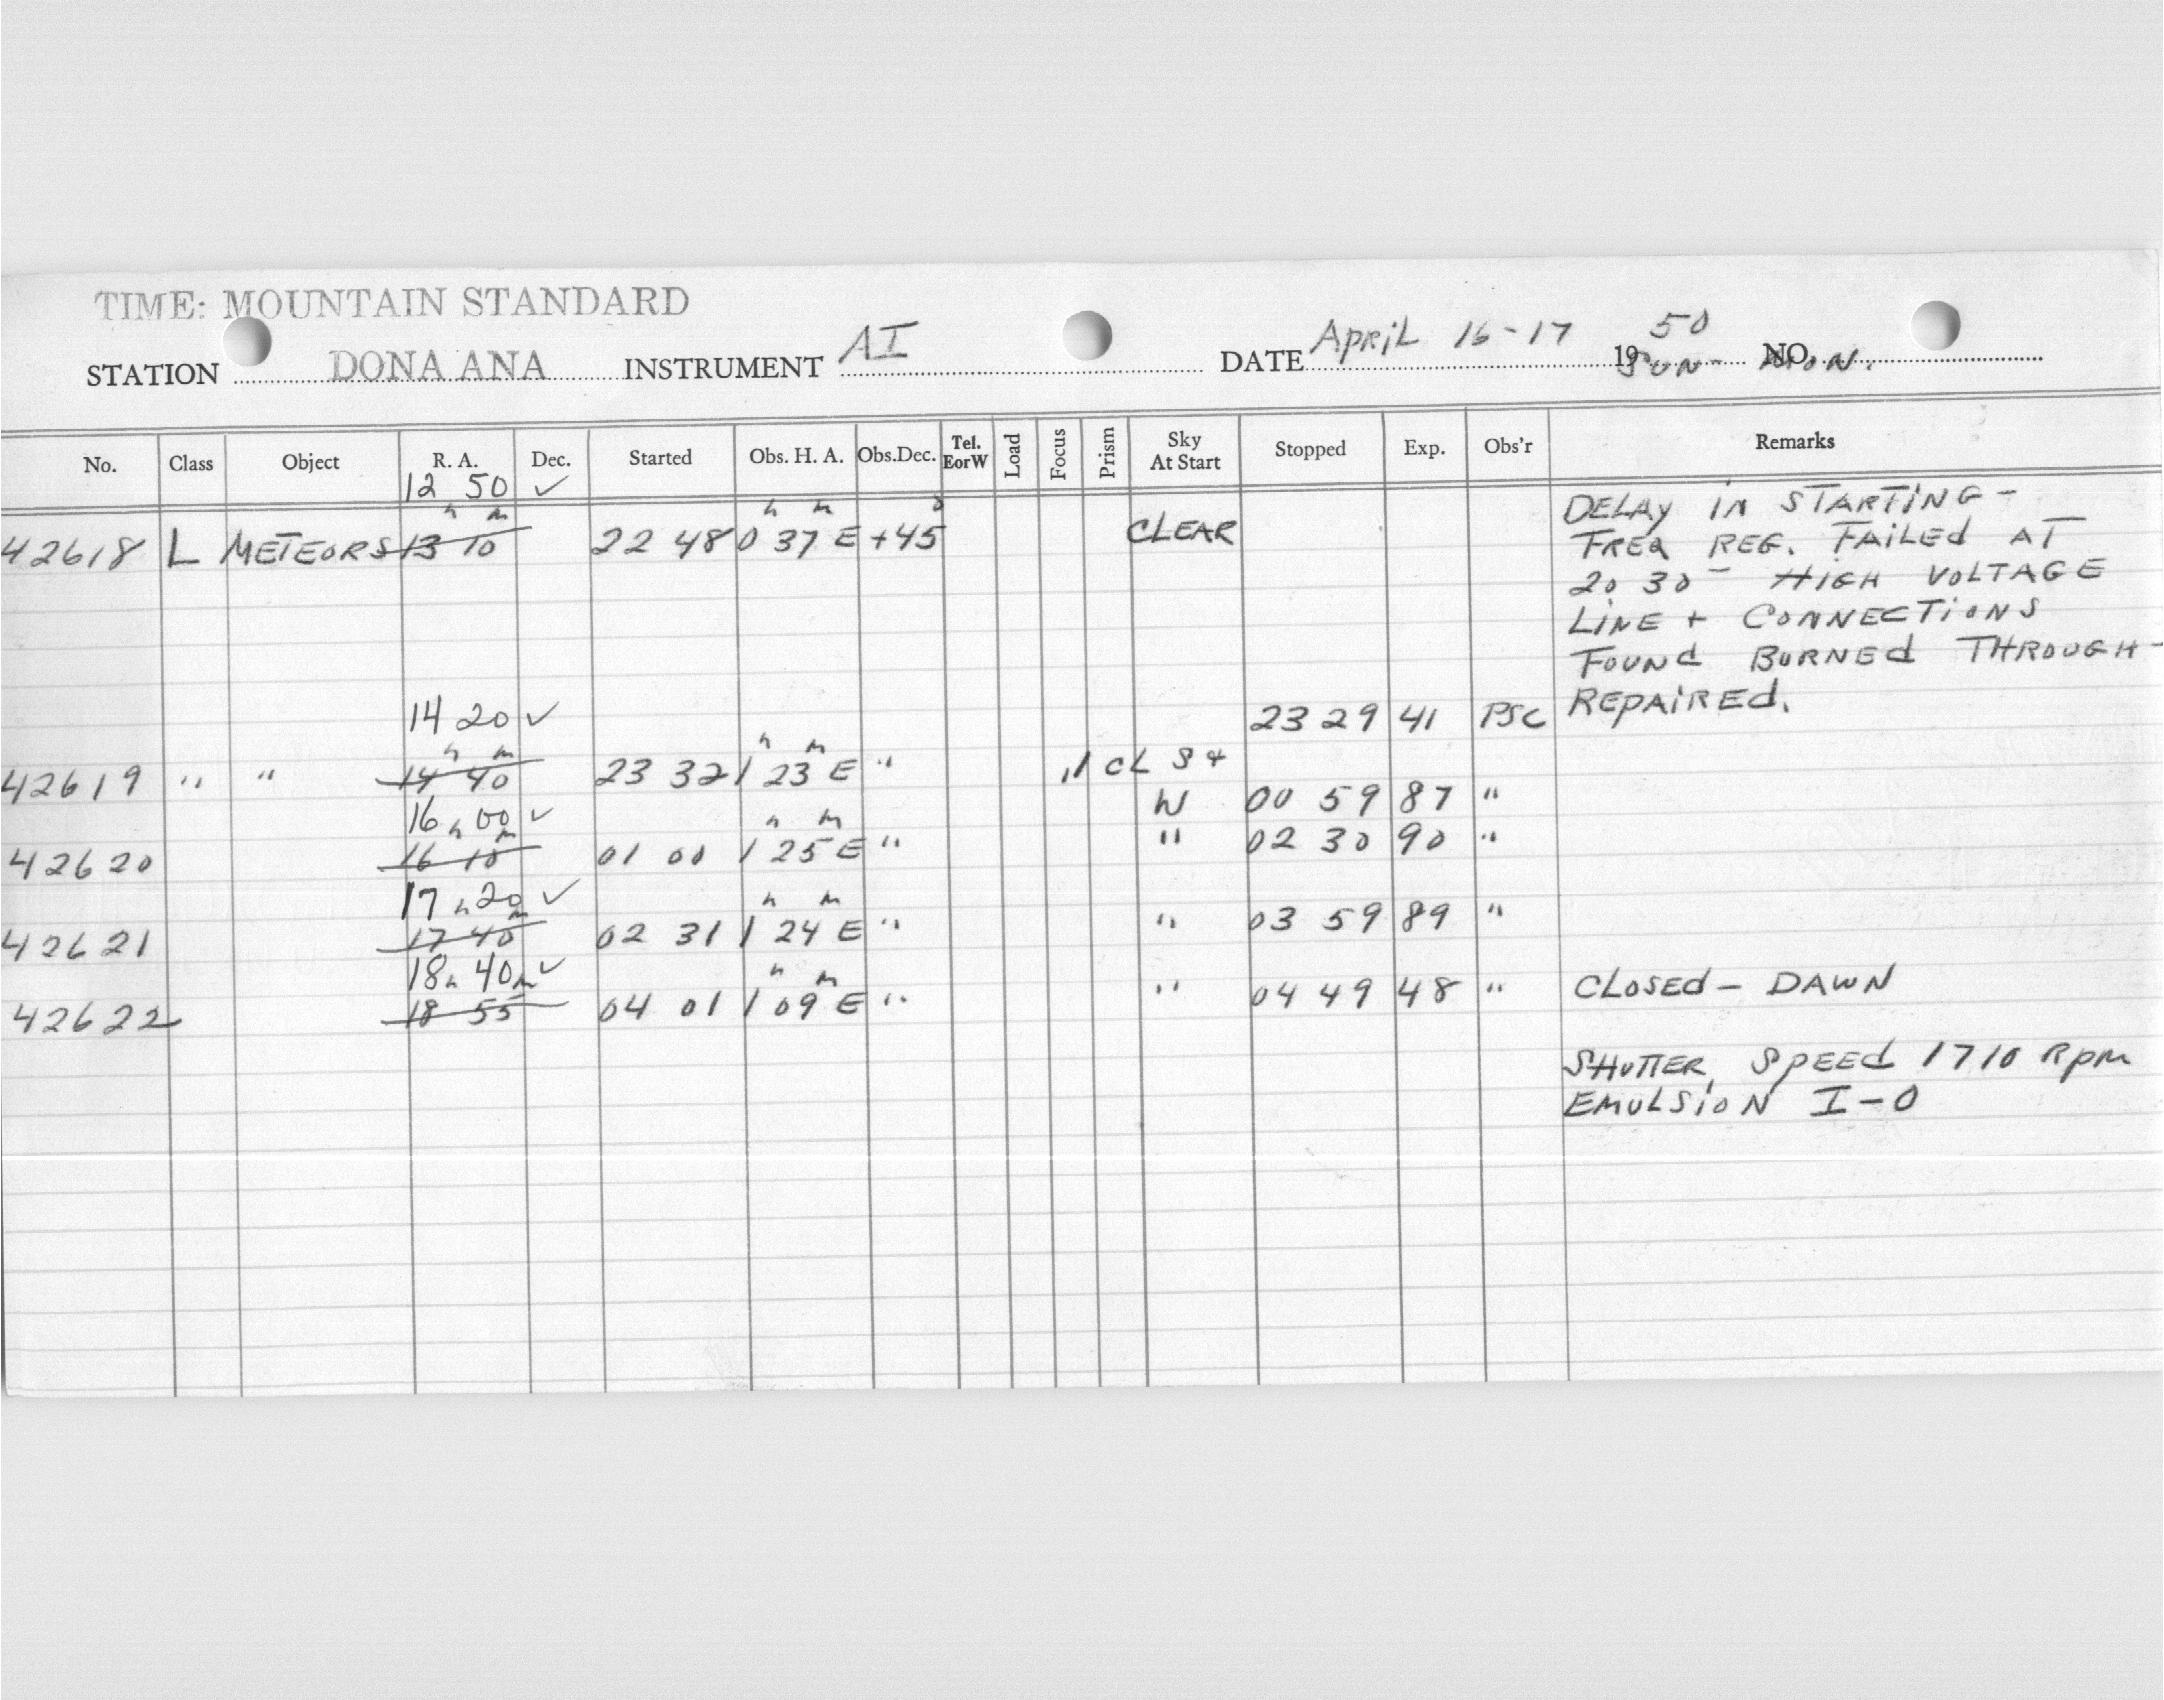 TIME: MOUNTAIN STANDARD
STATION DONA ANA INSTRUMENT AI DATE APRIL 16-17 1950 NO.
SUN- MON.
No. Class Object R. A. Dec. Started Obs. H. A. Obs.Dec. Tel. EorW Load Focus Prism Sky At Start Stopped Exp. Obs'r Remarks
12 50 ✓
42618 L METEORS 13h 10m 22 48 0h 37m E +45° CLEAR DELAY IN STARTING -
FREQ REG. FAILED AT
20 30 - HIGH VOLTAGE
LINE + CONNECTIONS
FOUND BURNED THROUGH -
14 20 ✓ 23 29 41 PSC REPAIRED.
42619 " " 14h 40m 23 32 1h 23m E " .1 CL S +
W 00 59 87 "
16 00 ✓
42620 16h 10m 01 00 1h 25m E " " 02 30 90 "
17 20 ✓
42621 17h 40m 02 31 1h 24m E " " 03 59 89 "
18 40 ✓
42622 18h 55m 04 01 1h 09m E " " 04 49 48 " CLOSED - DAWN
SHUTTER SPEED 1710 RPM
EMULSION I-O